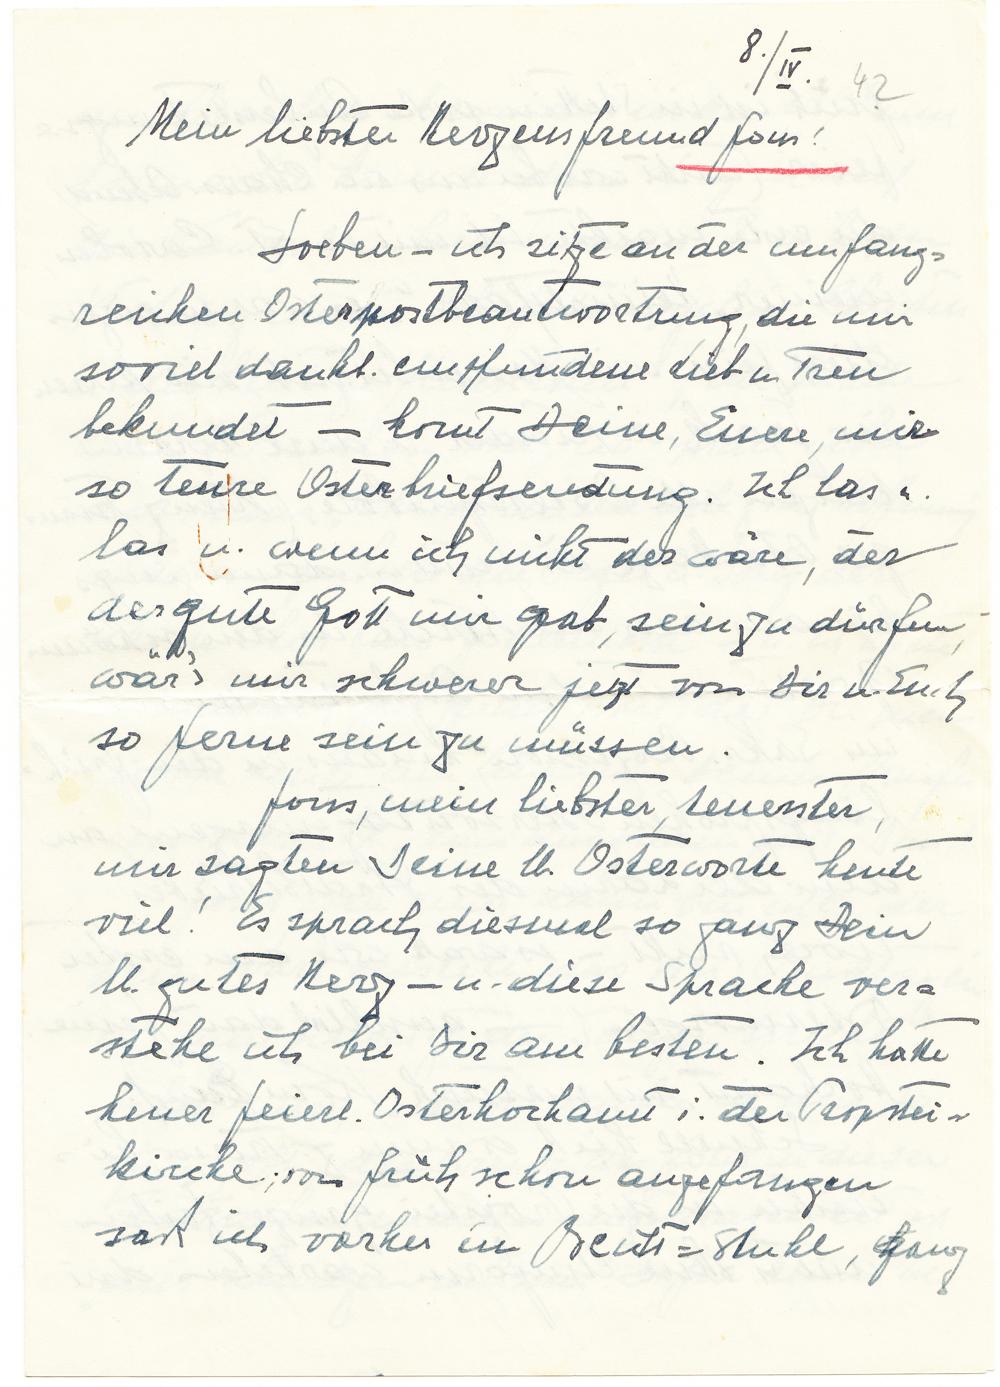 8./IV. 42
Mein liebster Herzensfreund Jons!
Soeben – ich sitze an der umfang=
reichen Osterpostbeantwortung, die mir
soviel dankb. empfundene Lieb u. Treu
bekundet – komt Deine, Euere, mir
so teure Osterbriefsendung. Ich las u.
las u. wenn ich nicht der wäre, der
der gute Gott mir gab, sein zu dürfen,
wär's mir schwerer jetzt von Dir u. Euch
so ferne sein zu müssen.
Jons, mein liebster, teuerster,
mir sagten Deine lb. Osterworte heute
viel! Es sprach diesmal so ganz Dein
lb. gutes Herz – u. diese Sprache ver=
stehe ich bei Dir am besten. Ich hatte
heuer feierl. Osterhochamt i. der Propstei=
kirche; von früh schon angefangen
saß ich vorher im Beicht=Stuhl, ganz